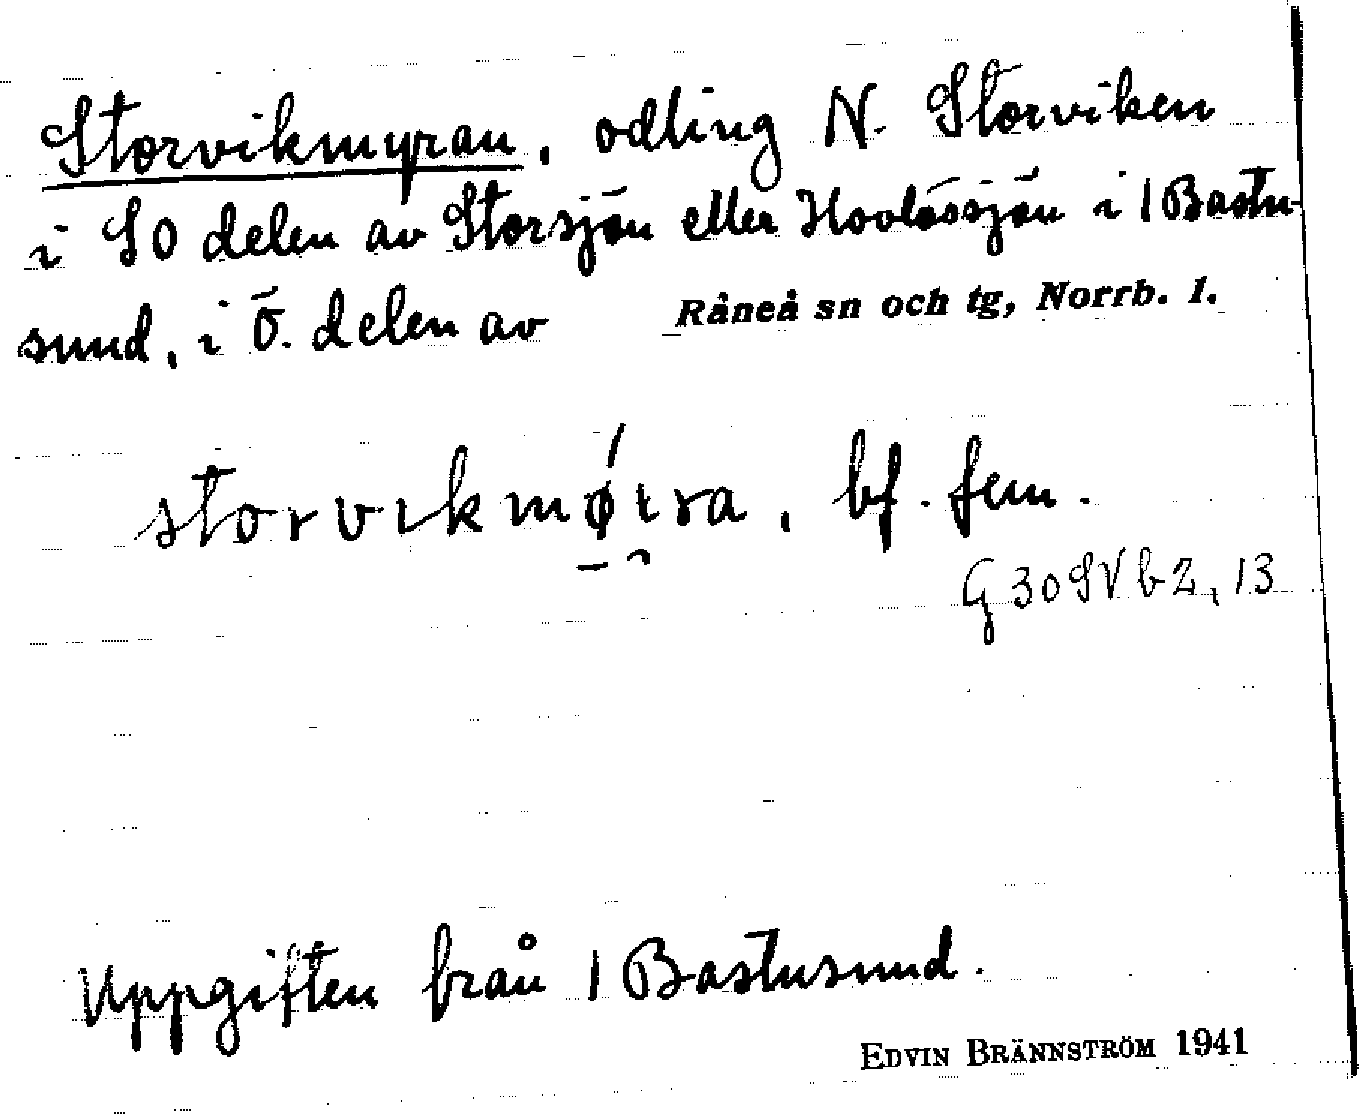 Storvikmyran, odling N. Storviken
i SO delen av Storsjön eller Hovlössjön i 1 Bastu-
sund, i Ö. delen av Råneå sn och tg, Norrb. l.
storvikmøira, bf. fem.
G 30 SV b 2, 13
Uppgiften från 1 Bastusund.
EDVIN BRÄNNSTRÖM 1941